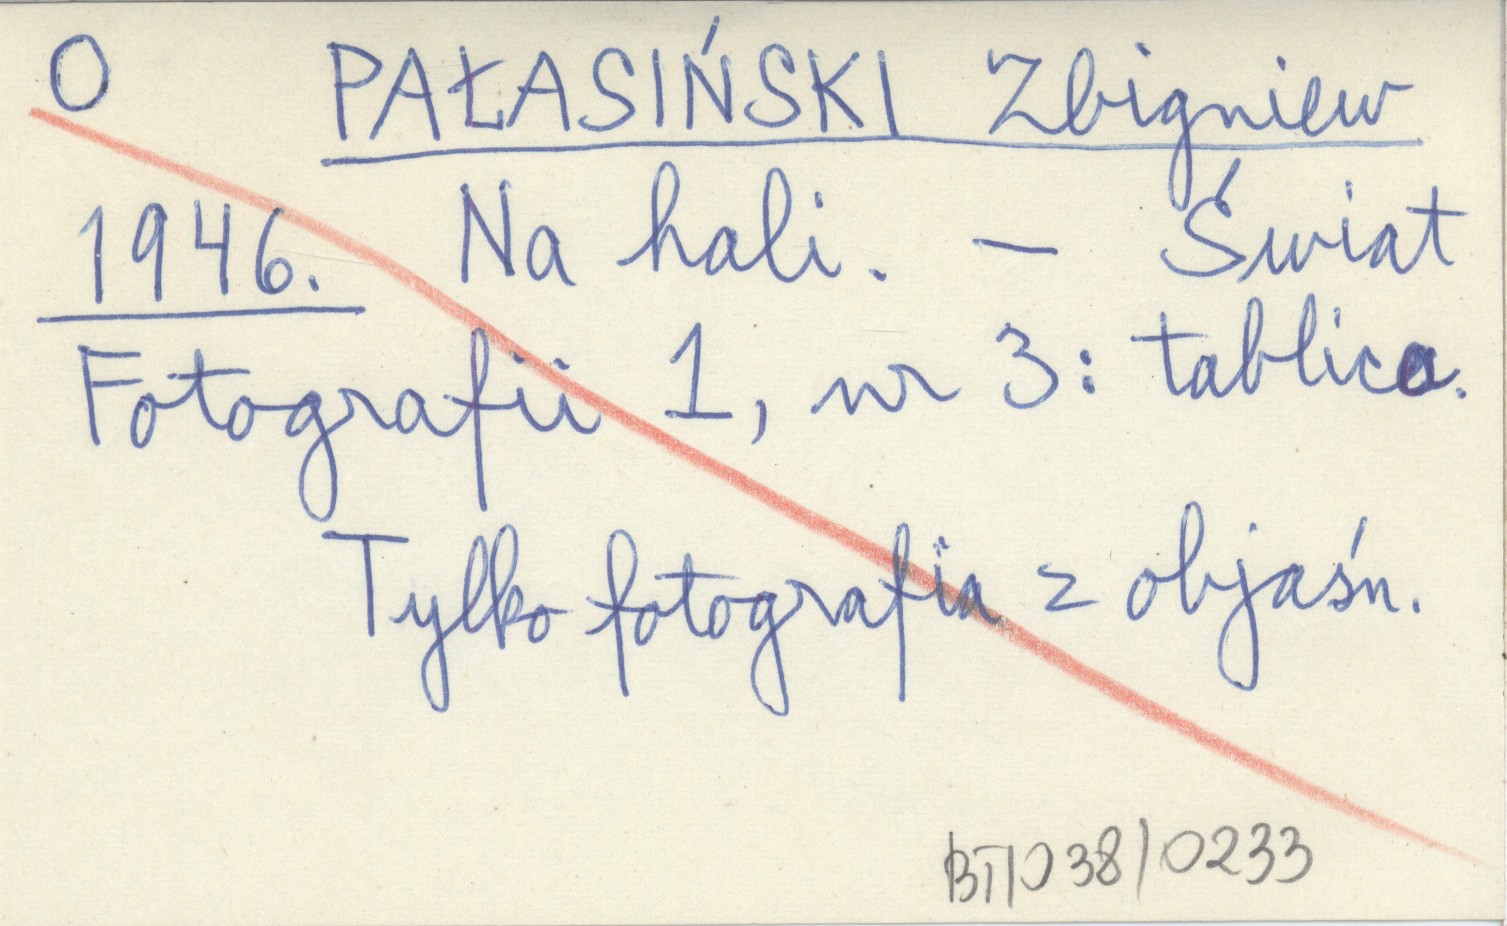 O PAŁASIŃSKI Zbigniew
1946. Na hali. – Świat
Fotografii 1, nr 3: tablica.
Tylko fotografia z objaśn.
BT/038/0233